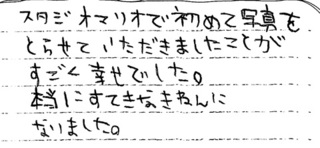 スタジオマリオで初めて写真を
とらせていただきましたことが
すごく幸せでした。
本当にすてきなきねんに
なりました。